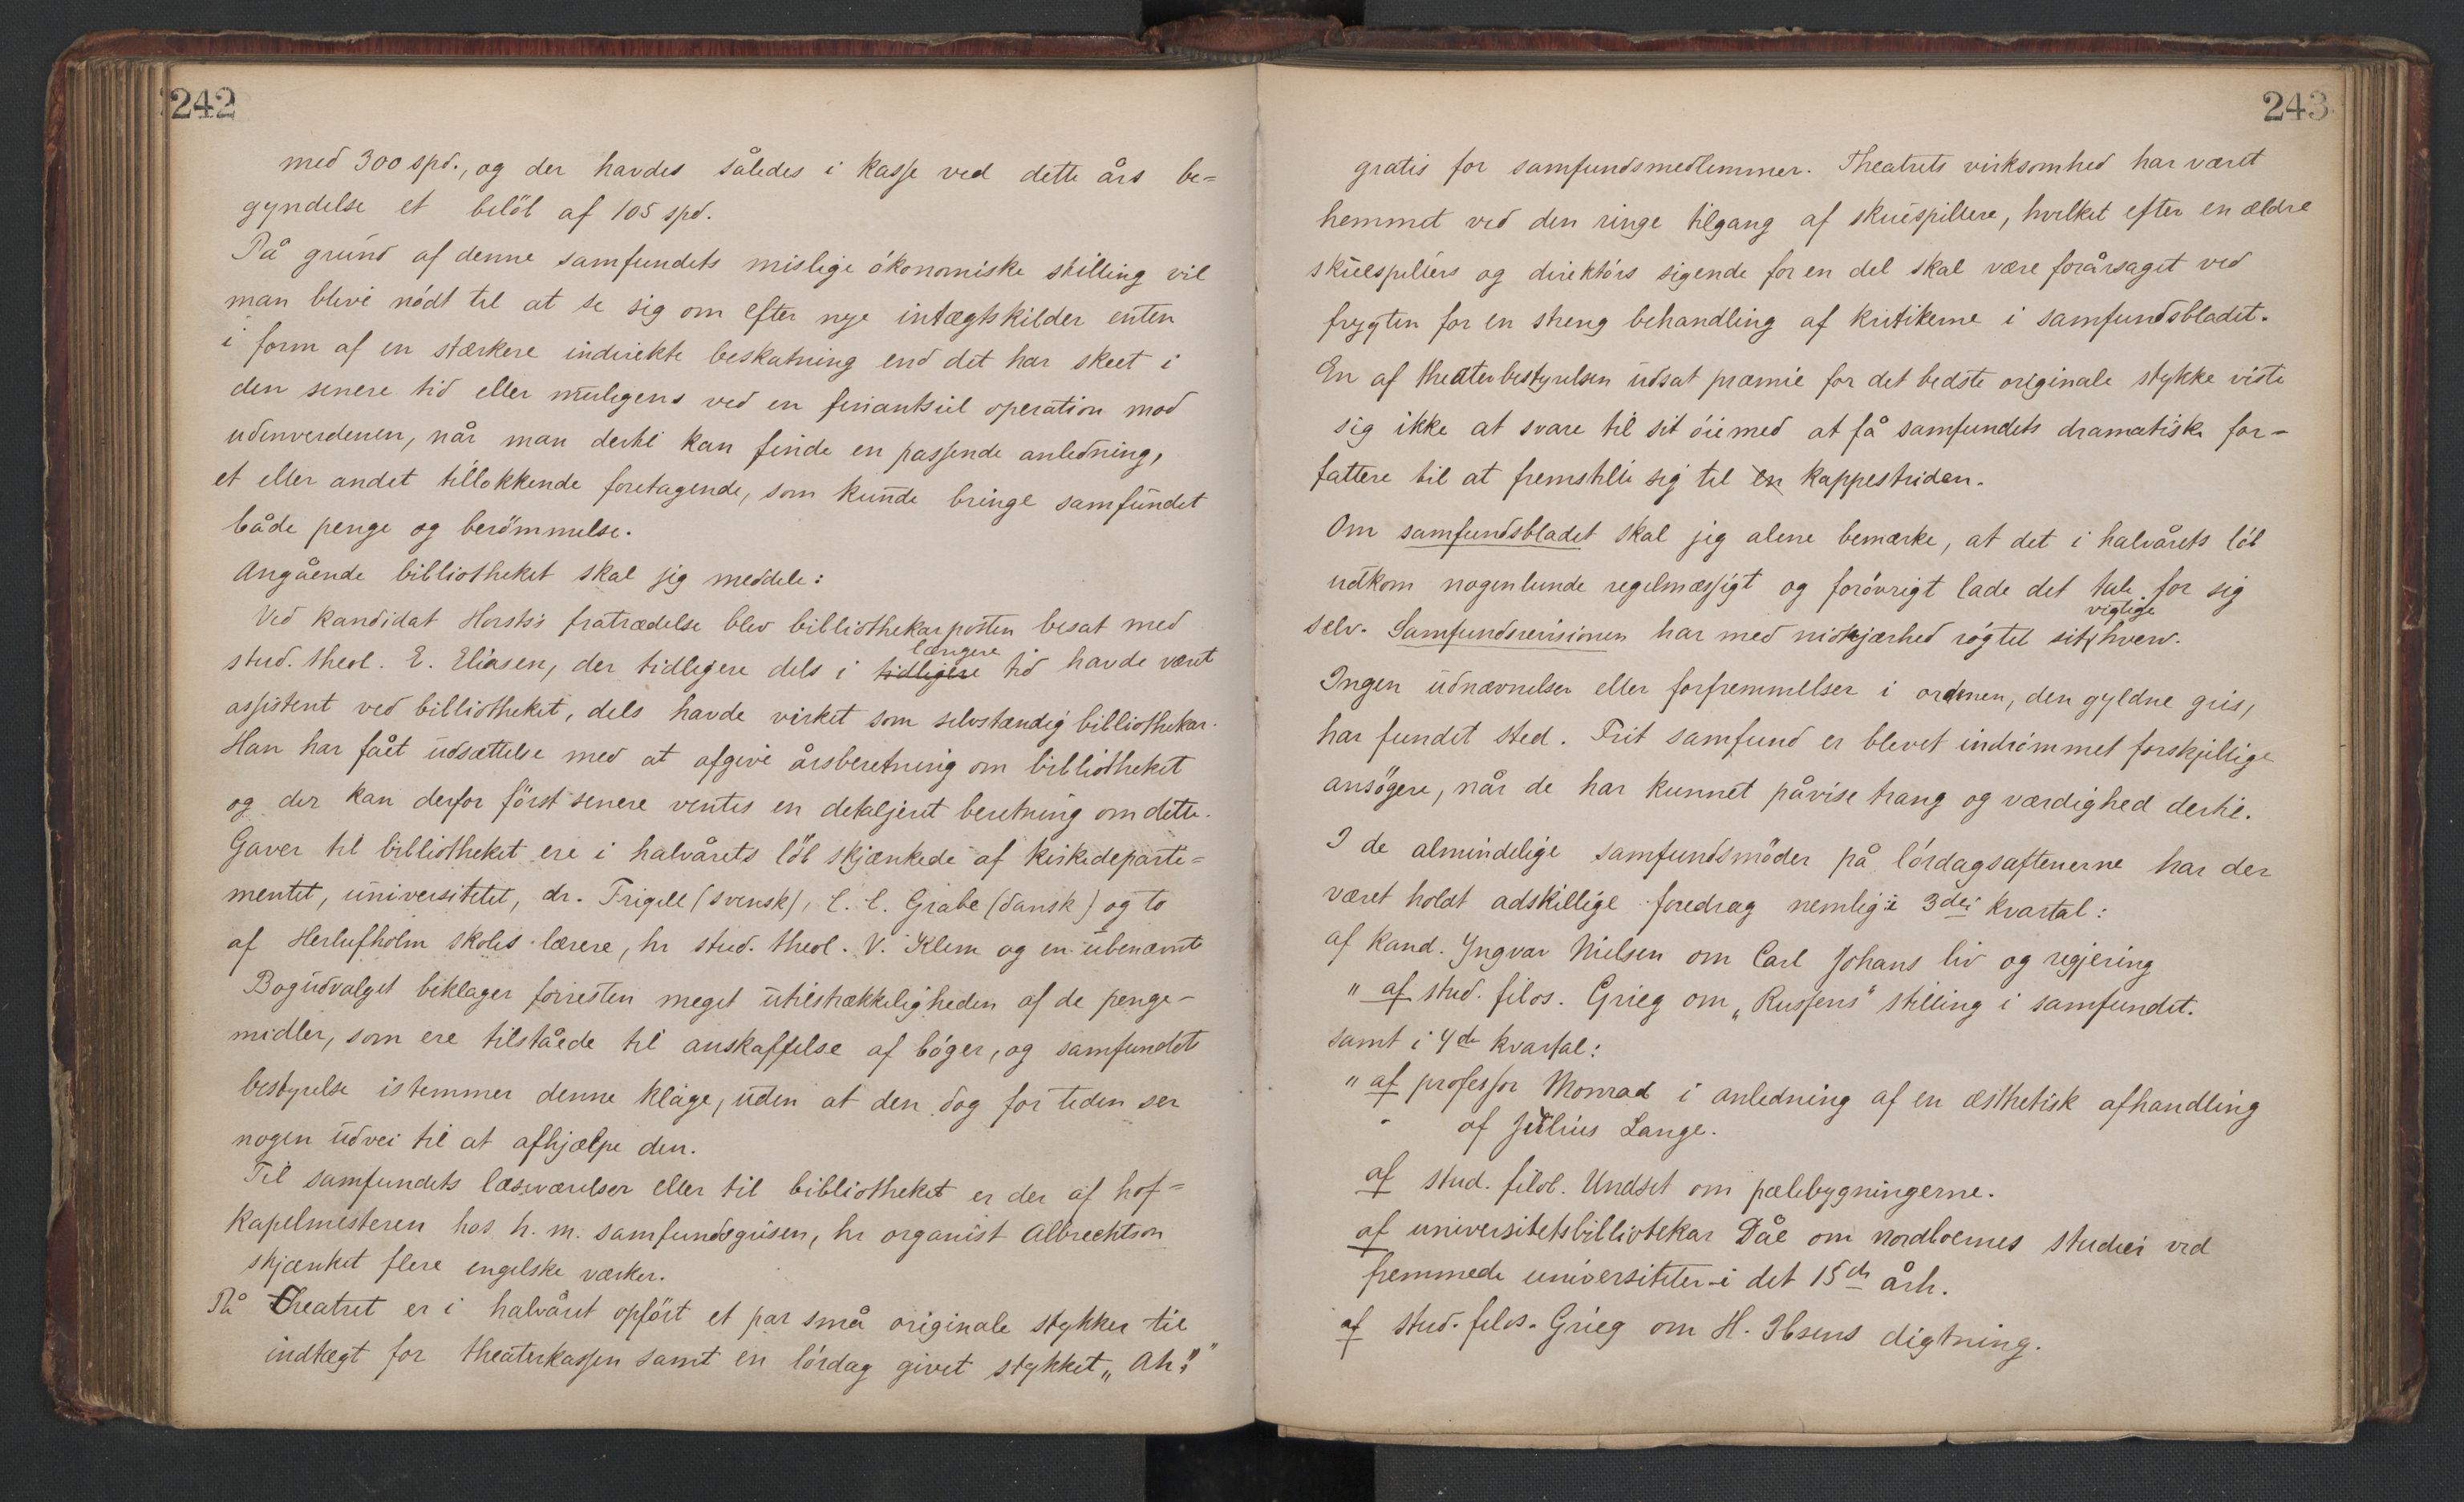 242
med 300 spd., og der havdes således i kasse ved dette års be=
gyndelse et belöb af 105 spd.
På grund af denne samfundets mislige ökonomiske stilling vil
man blive nödt til at se sig om efter nye intægtskilder enten
i form af en stærkere indirekte beskatning end det har skeet i
den senere tid eller muligens ved en finantsiel operation mod
udenverdenen, når man dertil kan finde en passende anledning,
et eller andet tillokkende foretagende, som kunde bringe samfundet
både penge og berömmelse.
Angående bibliotheket skal jig meddele:
Ved kandidat Horsts's fratrædelse blev bibliothekarposten besat med
stud. theol. E. Eliasen, der tidligere dels i tidligere længere tid havde været
assistent ved bibliotheket, dels havde virket som selvstændig bibliothekar.
Han har fået udsættelse med at afgive årsberetning om bibliotheket
og der kan derfor först senere ventes en detaljeret beretning om dette.
Gaver til bibliotheket ere i halvårets löb skjænkede af kirkedeparte=
mentet, universitetet, dr. Frigell (svensk), C. C. Grabe (dansk) og to
af Herlufholm skoles lærere, hr stud. theol. V. Klem og en ubenævnt
Bogudvalget beklager forresten meget utilstrækkeligheden af de penge-
midler, som ere tilståede til anskaffelse af böger, og samfundets
bestyrelse istemmer denne klage, uden at den dog for tiden ser
nogen udvei til at afhjælpe den.
Til samfundets læseværelser eller til bibliotheket er der af hof=
kapelmesteren hos h. m. samfundsgrisen, hr organist Albrechtson
skjænket flere engelske værker.
På Theatret er i halvåret opfört et par små originale stykker til
indtægt for theaterkassen samt en lördag givet stykket „Ah!"
243
gratis for samfundsmedlemmer. Theatrets virksomhed har været
hemmet ved den ringe tilgang af skuespillere, hvilket efter en ældre
skuespillers og direktörs sigende for en del skal være forårsaget ved
frygten for en streng behandling af kritikerne i samfundsbladet.
En af theaterbestyrelsen udsat præmie for det bedste originale stykke viste
sig ikke at svare til sit öiemed at få samfundets dramatiske for-
fattere til at fremstille sig til en kappestriden.
Om samfundsbladet skal jig alene bemærke, at det i halvårets löb
udkom nogenlunde regelmæssigt og forövrigt lade det tale for sig
selv. Samfundsrevisionen har med nidkjærhed rögtet sit vigtige hverv.
Ingen udnævnelser eller forfremmelser i ordenen, den gyldne gris,
har fundet sted. Frit samfund er blevet indrömmet forskjellige
ansögere, når de har kunnet påvise trang og værdighed dertil.
I de almindelige samfundsmöder på lördagsaftenerne har der
været holdt adskillige foredrag nemlig i 3de kvartal:
af kand. Yngvar Nielsen om Carl Johans liv og regjering
" af stud. filos. Grieg om „Russens" stilling i samfundet.
samt i 4de kvartal:
" af professor Monrad i anledning af en æsthetisk afhandling
af Julius Lange.
af stud. filol. Undset om pælebygningerne.
af universitetsbibliotekar Dåe om nordboernes studier ved
fremmede universiteter i det 15de årh.
af stud. filos. Grieg om H. Ibsens digtning.